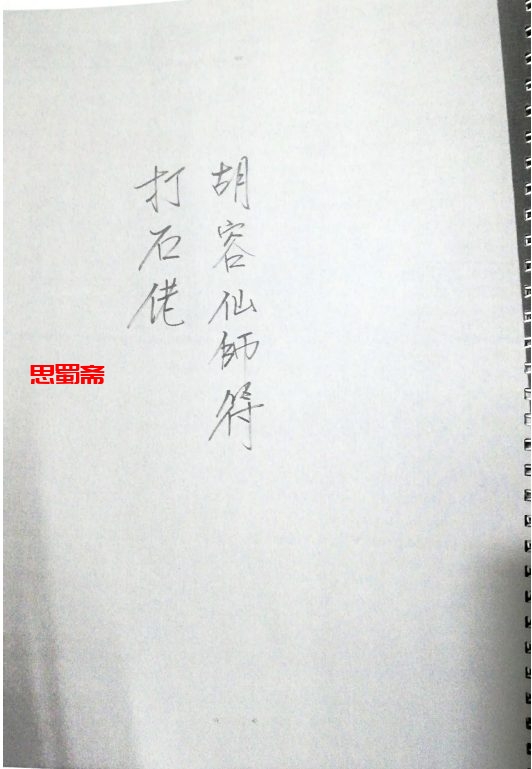 胡容仙師符
打石佬
思蜀斋